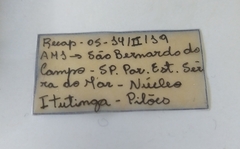 Recap - 05-14/II/19
AM1 → São Bernardo do
Campo - SP. Par. Est. Ser
ra do Mar - Núcleo
Itutinga - Pilões